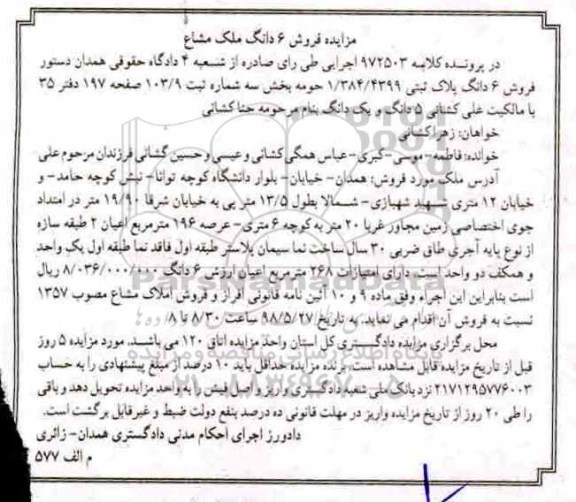 مزایده فروش ۶ دانگ ملک مشاع
در پرونده کلاسه ۹۷۲۵۰۳ اجرایی طی رای صادره از شعبه ۴ دادگاه حقوقی همدان دستور
فروش ۶ دانگ پلاک ثبتی ۱/۳۸۴/۴۳۹۹ حومه بخش سه شماره ثبت ۱۰۳/۹ صفحه ۱۹۷ دفتر ۳۵
با مالکیت علی کشانی ۵ دانگ و یک دانگ بنام مرحومه حنا کشانی
خواهان: زهرا کشانی
خوانده: فاطمه - موسی - کبری - عباس همگی کشانی و عیسی و حسین گشانی فرزندان مرحوم علی
آدرس ملک مورد فروش: همدان - خیابان - بلوار دانشگاه کوچه توانا - نبش کوچه حامد - و
خیابان ۱۲ متری شهید شهبازی - شمالا بطول ۱۳/۵ متر پی به خیابان شرقا ۱۹/۹۰ متر در امتداد
جوی اختصاصی زمین مجاور غربا ۲۰ متر به کوچه ۶ متری - عرصه ۱۹۶ مترمربع اعیان ۲ طبقه سازه
از نوع پایه آجری طاق ضربی ۳۰ سال ساخت نما سیمان پلاستر طبقه اول فاقد نما طبقه اول یک واحد
و همکف دو واحد است. دارای امتیازات ۲۶۸ مترمربع اعیان ارزش ۶ دانگ ۸/۰۳۶/۰۰۰/۰۰۰ ریال
است بنابراین این اجراء وفق ماده ۹ و ۱۰ آئین نامه قانونی افراز و فروش املاک مشاع مصوب ۱۳۵۷
نسبت به فروش آن اقدام می نماید. به تاریخ ۹۸/۵/۲۷ ساعت ۸/۳۰ تا ۸
محل برگزاری مزایده دادگستری کل استان واحد مزایده اتاق ۱۲۰ می باشد. مورد مزایده ۵ روز
قبل از تاریخ مزایده قابل مشاهده است. برنده مزایده حداقل باید ۱۰ درصد از مبلغ پیشنهادی را به حساب
۲۱۷۱۲۹۵۷۷۶۰۰۳ نزد بانک ملی شعبه دادگستری واریز و اصل فیش را به واحد مزایده تحویل دهد و باقی
را طی ۲۰ روز از تاریخ مزایده واریز در مهلت قانونی ده درصد بنفع دولت ضبط و غیرقابل برگشت است.
دادورز اجرای احکام مدنی دادگستری همدان - زائری
م الف ۵۷۷